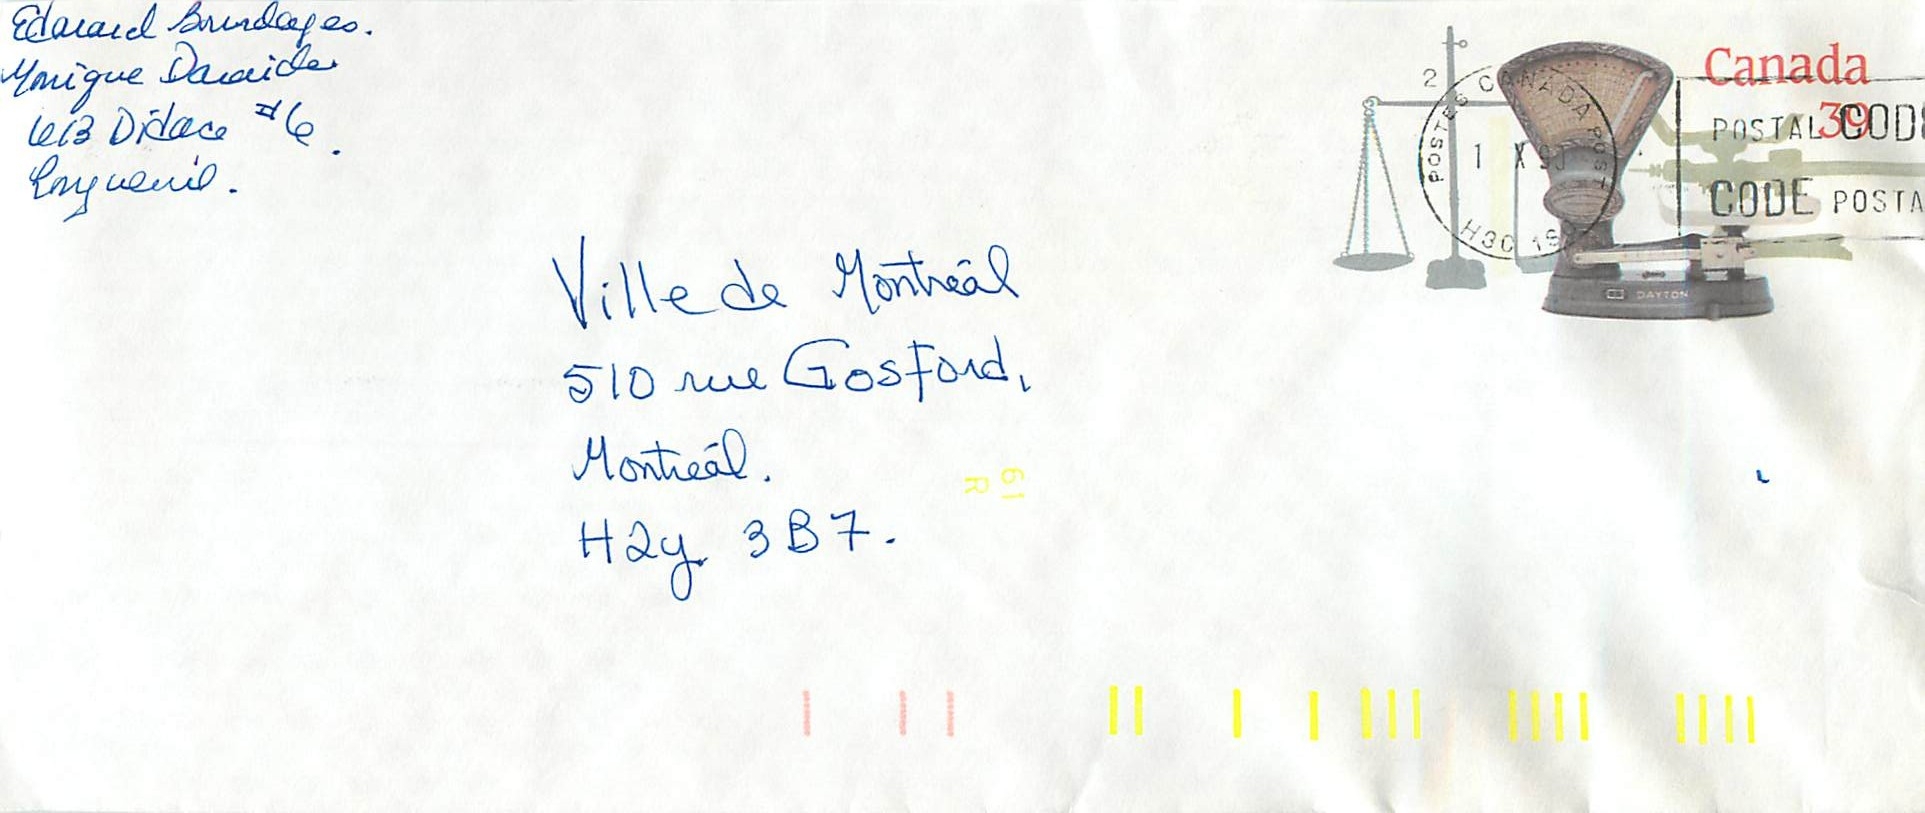 Edouard Bourdages.
Monique Daraiche
613 Didace #6
Longueuil.
Canada
39
2
POSTES CANADA POST
1 X 90
H3C 1S
POSTAL CODE
CODE POSTA
DAYTON
Ville de Montréal
510 rue Gosford,
Montréal.
H2y 3B7.
61
R